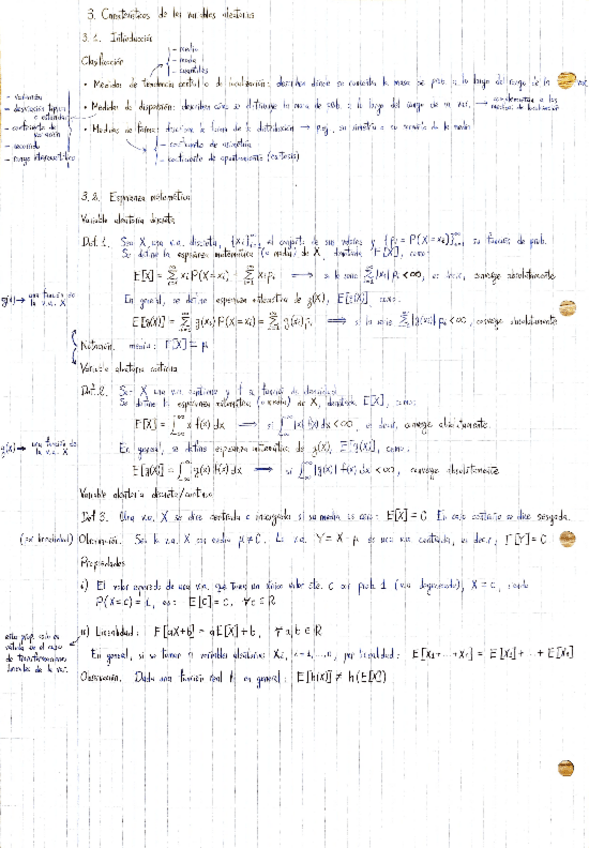 3. Características de las variables aleatorias
3.1. Introducción
Clasificación
- media
- moda
- cuantiles
• Medidas de tendencia central o de localización: describen dónde se concentra la masa de prob. a lo largo del rango de la v.a.
• Medidas de dispersión: describen cómo se distribuye la masa de prob. a lo largo del rango de su v.a. → complementan a las medidas de localización
- varianza
- desviación típica o estándar
- coeficiente de variación
- recorrido
- rango intercuartílico
• Medidas de forma: describen la forma de la distribución → p.ej. su simetría
- coeficiente de asimetría
- coeficiente de apuntamiento (curtosis)
3.2. Esperanza matemática
Variable aleatoria discreta
Def. 1. Sea X una v.a. discreta, {xᵢ}ᵢ₌₁^∞ el conjunto de sus valores y {pᵢ = P(X = xᵢ)}ᵢ₌₁^∞ su función de prob.
Se define la esperanza matemática (o media) de X, denotada E[X], como:
E[X] = Σᵢ₌₁^∞ xᵢ P(X = xᵢ) = Σᵢ₌₁^∞ xᵢ pᵢ ⟹ si la serie Σᵢ₌₁^∞ |xᵢ| pᵢ < ∞, es decir, converge absolutamente
g(x) → una función de la v.a. X
En general, se define esperanza matemática de g(X), E[g(X)], como:
E[g(X)] = Σᵢ₌₁^∞ g(xᵢ) P(X = xᵢ) = Σᵢ₌₁^∞ g(xᵢ) pᵢ ⟹ si la serie Σᵢ₌₁^∞ |g(xᵢ)| pᵢ < ∞, converge absolutamente
Notación. media: E[X] = μ
Variable aleatoria continua
Def. 2. Sea X una v.a. continua y f su función de densidad.
Se define la esperanza matemática (o media) de X, denotada E[X], como:
E[X] = ∫₋∞^∞ x f(x) dx ⟹ si ∫₋∞^∞ |x| f(x) dx < ∞, es decir, converge absolutamente.
g(x) → una función de la v.a. X
En general, se define esperanza matemática de g(X), E[g(X)], como:
E[g(X)] = ∫₋∞^∞ g(x) f(x) dx ⟹ si ∫₋∞^∞ |g(x)| f(x) dx < ∞, converge absolutamente
Variable aleatoria discreta/continua
Def 3. Una v.a. X se dice centrada o insesgada si su media es cero: E[X] = 0 En caso contrario se dice sesgada.
(por linealidad) Observación. Sea la v.a. X con media μ ≠ 0. La v.a. Y = X - μ es una v.a. centrada, es decir, E[Y] = 0
Propiedades
i) El valor esperado de una v.a. que toma un único valor cte. c con prob. 1 (v.a. degenerada), X = c, siendo
P(X = c) = 1, es: E[c] = c, ∀c ∈ ℝ
ii) Linealidad: E[aX+b] = aE[X] + b, ∀ a, b ∈ ℝ
esta prop. solo es válida en el caso de transformaciones lineales de la v.a.
En general, si se toman n variables aleatorias Xᵢ, i = 1, ..., n, por linealidad: E[X₁ + ... + Xₙ] = E[X₁] + ... + E[Xₙ]
Observación. Dada una función real h en general: E[h(X)] ≠ h(E[X])